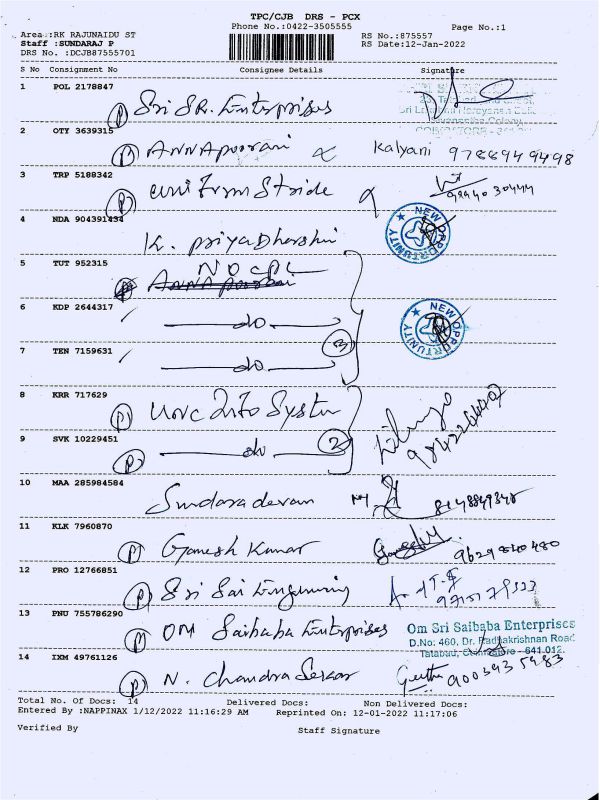 TPC/CJB DRS - PCX
Phone No.:0422-3505555 Page No.:1
Area :RK RAJUNAIDU ST RS No.:875557
Staff :SUNDARAJ P RS Date:12-Jan-2022
DRS No. :DCJB87555701
S No Consignment No Consignee Details Signature
1 POL 2178847 P Sri SR. Enterprises
2 OTY 3639315 P ANNApoorani & Kalyani 9788949498
3 TRP 5188342 P Uniform Stride
4 NDA 904391434 K. Priya Dharshni NEW OPPORTUNITY
5 TUT 952315 NDCPL
6 KDP 2644317 do NEW OPPORTUNITY
7 TEN 7159631 do 3
8 KRR 717629 P Info System
9 SVK 10229451 P do 2
10 MAA 285984584 Sundaradevan
11 KLK 7960870 P Ganesh Kumar 9629840480
12 PRO 12766851 P Sri Sai Engineering
13 PNU 755786290 P OM Saibaba Enterprises
Om Sri Saibaba Enterprises
D.No: 460, Dr. Radhakrishnan Road
Tatabad, Coimbatore - 641 012.
14 IXM 49761126 P N. Chandra Sekar Geetha
Total No. Of Docs: 14 Delivered Docs: Non Delivered Docs:
Entered By :NAPPINAX 1/12/2022 11:16:29 AM Reprinted On : 12-01-2022 11:17:06
Verified By Staff Signature